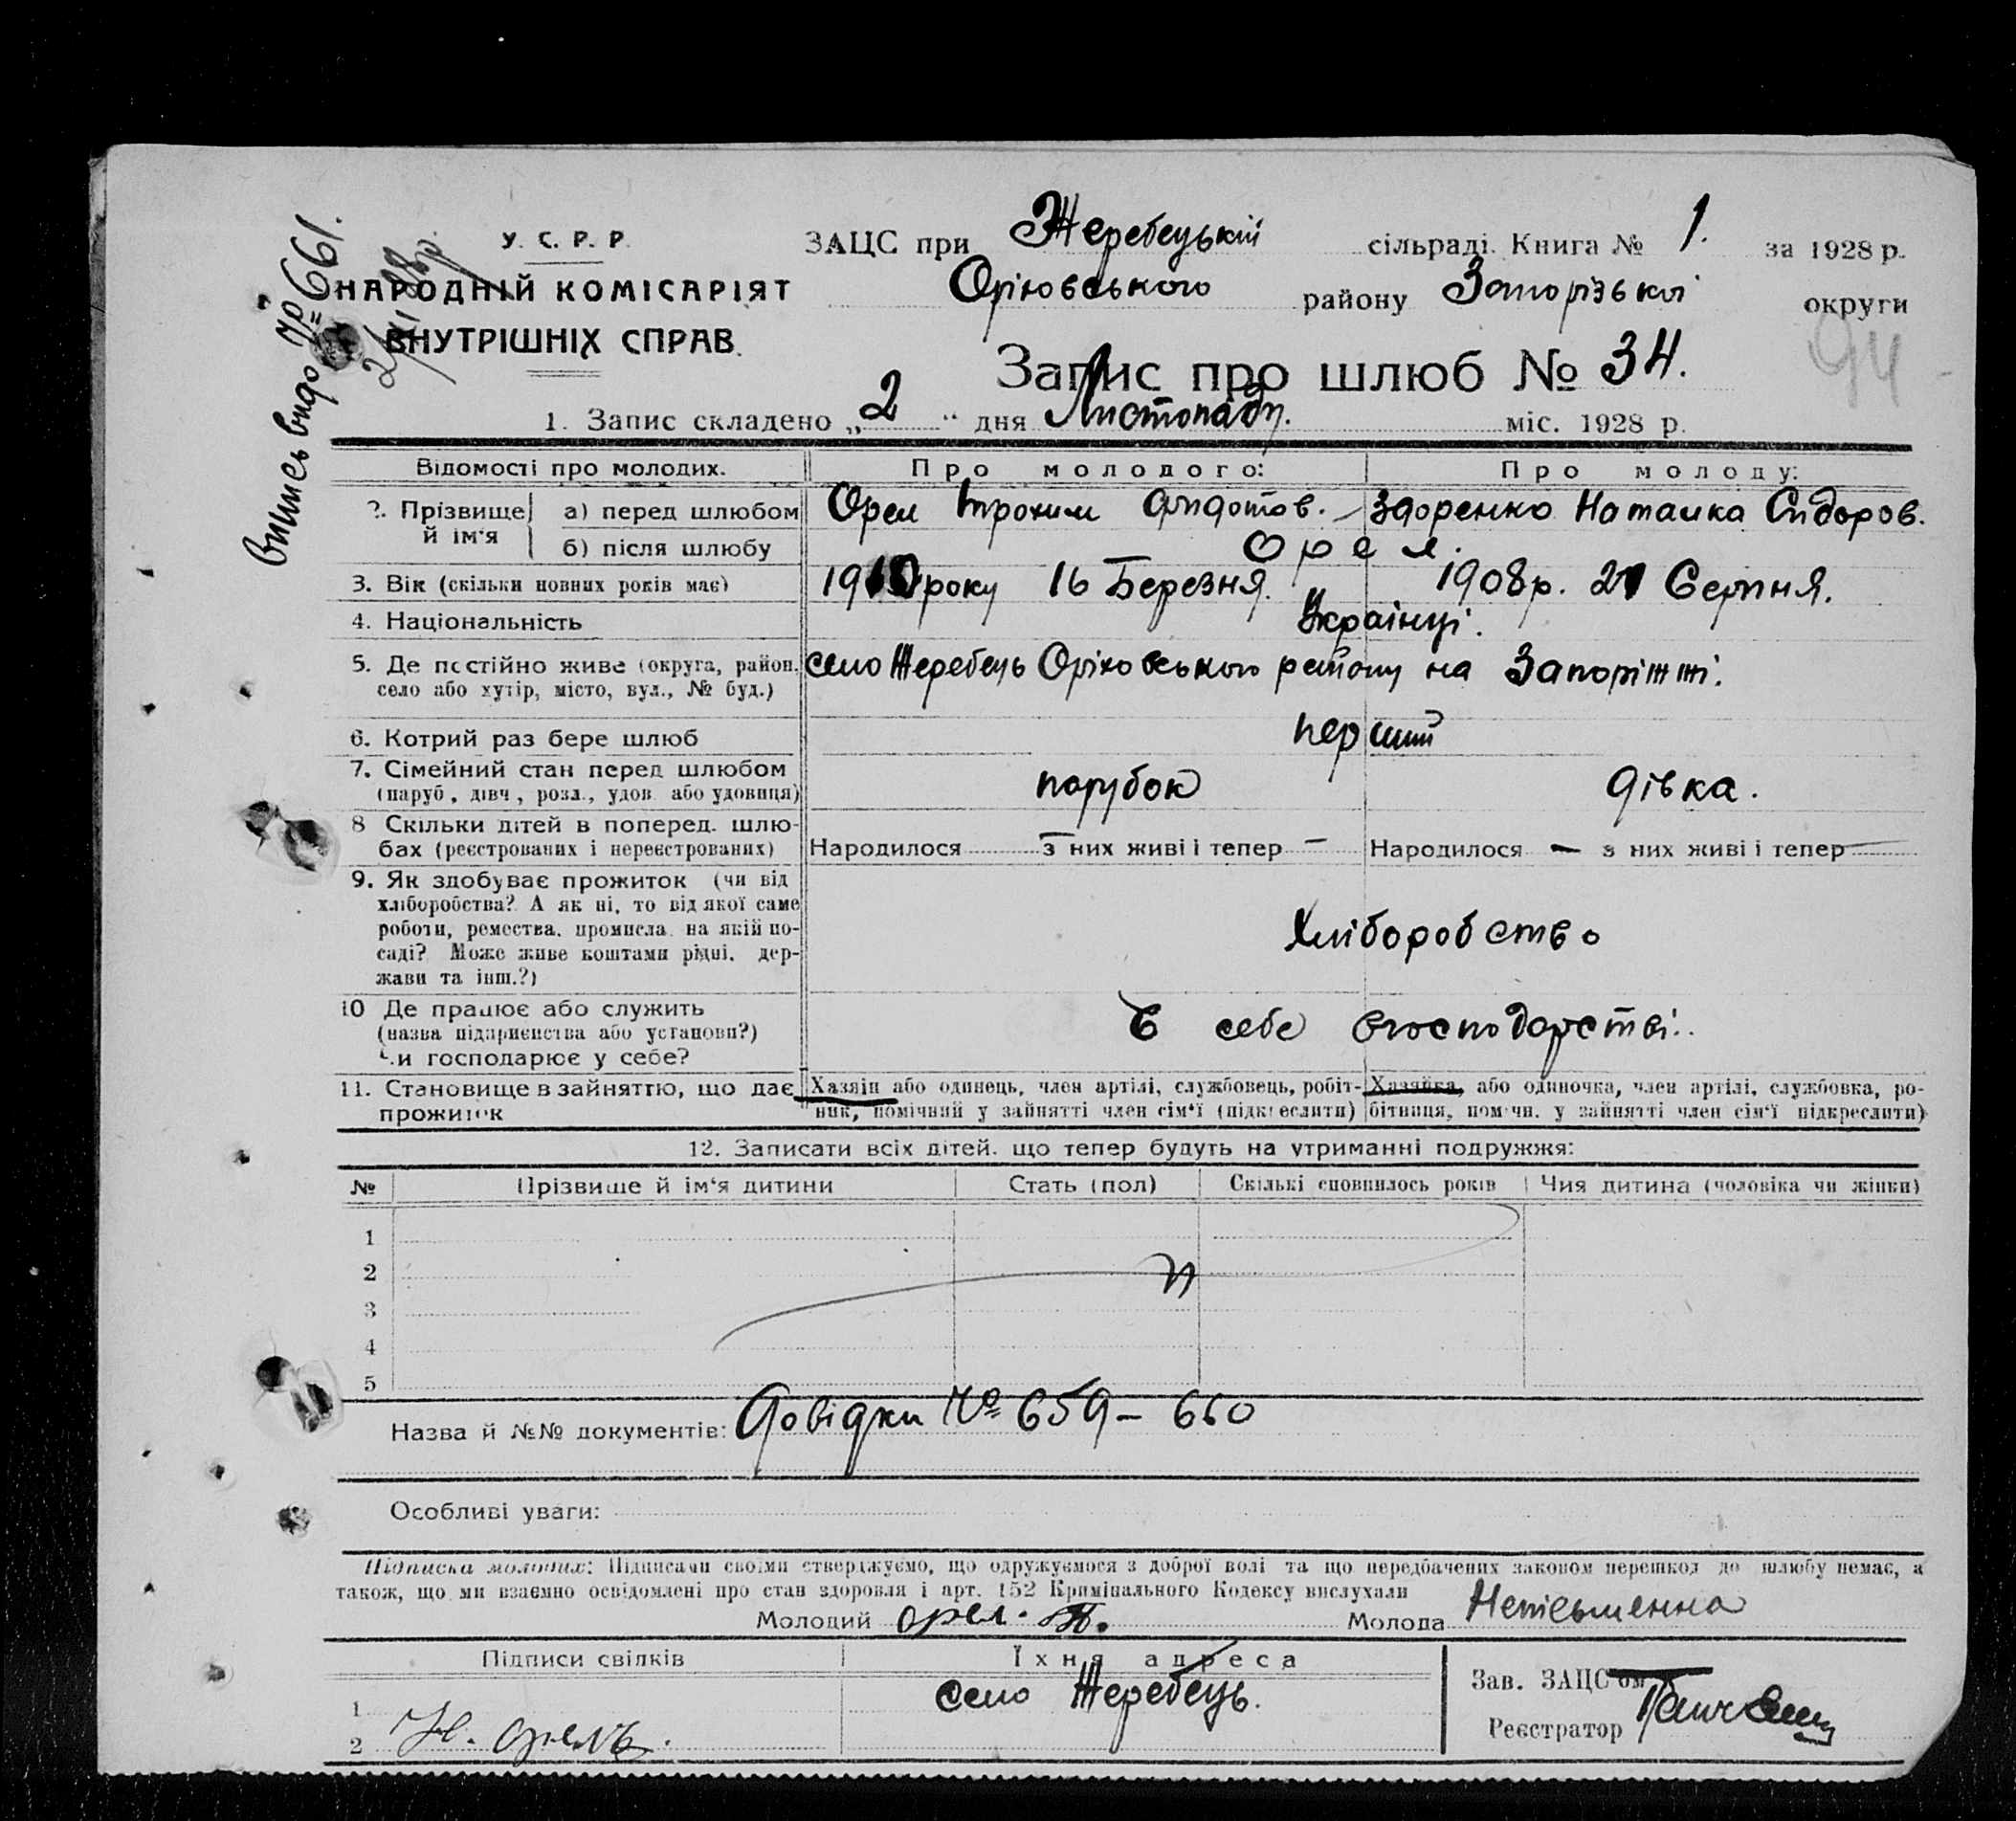 У. С. Р. Р.
НАРОДНІЙ КОМІСАРІЯТ
ВНУТРІШНІХ СПРАВ.
Випись видо № 661.
2/XI 28р
ЗАЦС при Жеребецькій сільраді. Книга № 1. за 1928 р.
Оріховського району Запорізької округи
94
Запис про шлюб № 34.
1. Запис складено „2“ дня Листопаду. міс. 1928 р.
Відомості про молодих. Про молодого: Про молоду:
2. Прізвище й ім'я
а) перед шлюбом Орел Трохим Федотов. Здоренко Наталка Сидоров.
б) після шлюбу Орел.
3. Вік (скільки повних років має) 1910 року 16 Березня. 1908р. 21 Серпня.
4. Національність Українці.
5. Де постійно живе (округа, район, село або хутір, місто, вул., № буд.) село Жеребець Оріховського району на Запоріжжі.
6. Котрий раз бере шлюб перший
7. Сімейний стан перед шлюбом (паруб., дівч., розл., удов. або удовиця) парубок дівка.
8 Скільки дітей в поперед. шлюбах (реєстрованих і нереєстрованих) Народилося — з них живі і тепер — Народилося — з них живі і тепер —
9. Як здобуває прожиток (чи від
хліборобства? А як ні, то від якої саме
роботи, ремества, промисла, на якій по-
саді? Може живе коштами рідні, дер-
жави та інш.?)
Хліборобство
10 Де працює або служить
(назва підприємства або установи?)
Чи господарює у себе?
В себе вгосподарстві.
11. Становище в зайняттю, що дає прожиток
Хазяїн або одинець, член артілі, службовець, робіт-
ник, помічний у зайнятті член сім'ї (підкреслити)
Хазяйка, або одиночка, член артілі, службовка, ро-
бітниця, помічн. у зайнятті член сім'ї підкреслити)
12. Записати всіх дітей, що тепер будуть на утриманні подружжя:
№ Прізвище й ім'я дитини Стать (пол) Скількі сповнилось років Чия дитина (чоловіка чи жінки)
1
2
3
4
5
Назва й №№ документів: Довідки № 659 – 660
Особливі уваги:
Підписка молодих: Підписами своїми стверджуємо, що одружуємося з доброї волі та що передбачених законом перешкод до шлюбу немає, а
також, що ми взаємно освідомлені про стан здоровля і арт. 152 Кримінального Кодексу вислухали
Молодий орел. Т. Молода Неписьменна
Підписи свідків Їхня адреса
1 село Жеребець.
2 орелъ.
Зав. ЗАЦС'ом
Реєстратор